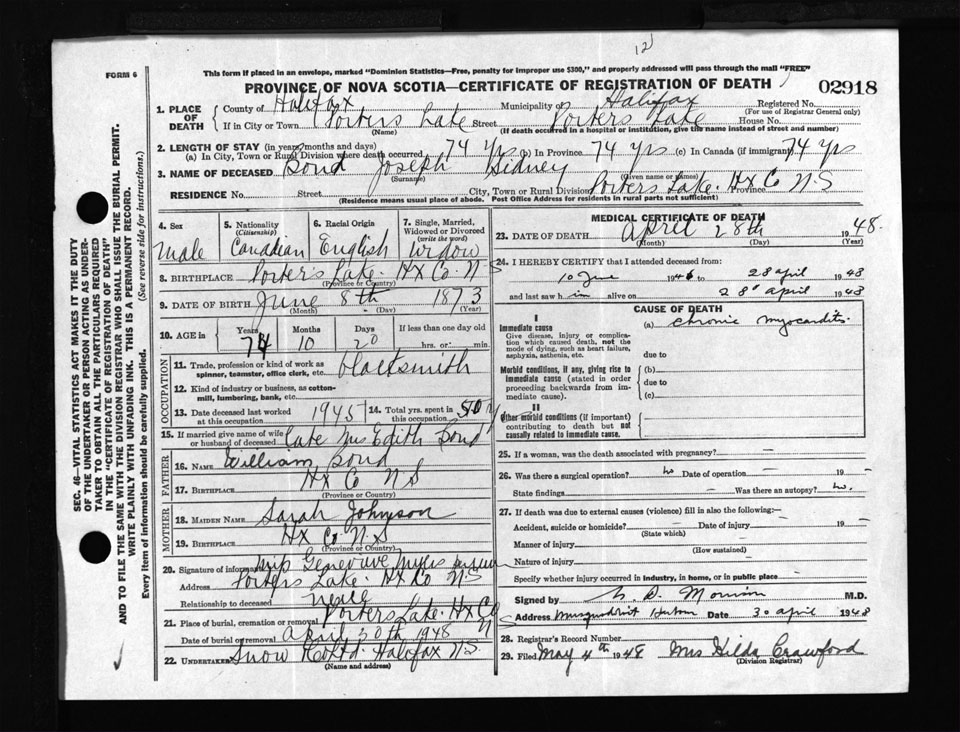 12
FORM 6
This form if placed in an envelope, marked "Dominion Statistics—Free, penalty for improper use $300," and properly addressed will pass through the mail "FREE"
PROVINCE OF NOVA SCOTIA—CERTIFICATE OF REGISTRATION OF DEATH
02918
SEC. 46—VITAL STATISTICS ACT MAKES IT THE DUTY
OF THE UNDERTAKER OR PERSON ACTING AS UNDER-
TAKER TO OBTAIN ALL THE PARTICULARS REQUIRED
IN THE "CERTIFICATE OF REGISTRATION OF DEATH"
AND TO FILE THE SAME WITH THE DIVISION REGISTRAR WHO SHALL ISSUE THE BURIAL PERMIT.
WRITE PLAINLY WITH UNFADING INK. THIS IS A PERMANENT RECORD.
Every item of information should be carefully supplied. (See reverse side for instructions.)
1. PLACE OF DEATH
County of Halifax Municipality of Halifax Registered No.
(For use of Registrar General only)
If in City or Town Porters Lake Street Porters Lake House No.
(Name) (If death occurred in a hospital or institution, give the name instead of street and number)
2. LENGTH OF STAY (in years, months and days)
(a) In City, Town or Rural Division where death occurred 74 Yrs (b) In Province 74 yrs (c) In Canada (if immigrant) 74 Yrs
3. NAME OF DECEASED Bond Joseph Sidney
(Surname) (Given name or names)
RESIDENCE No. Street City, Town or Rural Division Porters Lake. Hx Co Province N.S
(Residence means usual place of abode. Post Office Address for residents in rural parts not sufficient)
4. Sex Male
5. Nationality (Citizenship) Canadian
6. Racial Origin English
7. Single, Married, Widowed or Divorced (write the word) Widow
8. BIRTHPLACE Porters Lake. Hx Co. N.S
(Province or Country)
9. DATE OF BIRTH June 8th 1873
(Month) (Day) (Year)
10. AGE in Years 74 Months 10 Days 20 If less than one day old hrs. or min.
OCCUPATION
11. Trade, profession or kind of work as spinner, teamster, office clerk, etc. blacksmith
12. Kind of industry or business, as cotton-mill, lumbering, bank, etc.
13. Date deceased last worked at this occupation 1945
14. Total yrs. spent in this occupation 50 y
15. If married give name of wife or husband of deceased Late Mrs Edith Bond
FATHER
16. NAME William Bond
17. BIRTHPLACE Hx Co N S
(Province or Country)
MOTHER
18. MAIDEN NAME Sarah Johnson
19. BIRTHPLACE Hx Co N.S
(Province or Country)
20. Signature of informant Genevieve
Address Porters Lake. Hx Co N.S
Relationship to deceased niece
21. Place of burial, cremation or removal Porters Lake. Hx Co
Date of burial or removal April 30th 1948 N
22. UNDERTAKER Snow & Co Ltd Halifax N.S.
(Name and address)
MEDICAL CERTIFICATE OF DEATH
23. DATE OF DEATH April 28th 1948.
(Month) (Day) (Year)
24. I HEREBY CERTIFY that I attended deceased from:
10 June 1946 to 28 april 1948
and last saw him alive on 28 april 1948
CAUSE OF DEATH
I
Immediate cause (a) chronic myocarditis
Give disease, injury or complication which caused death, not the mode of dying, such as heart failure, asphyxia, asthenia, etc.
due to
Morbid conditions, if any, giving rise to immediate cause (stated in order proceeding backwards from immediate cause).
(b)
due to
(c)
II
Other morbid conditions (if important) contributing to death but not causally related to immediate cause.
25. If a woman, was the death associated with pregnancy? —
26. Was there a surgical operation? No Date of operation — 19 —
State findings — Was there an autopsy? No.
27. If death was due to external causes (violence) fill in also the following:—
Accident, suicide or homicide? — Date of injury — 19 —
(State which)
Manner of injury
(How sustained)
Nature of injury
Specify whether injury occurred in industry, in home, or in public place —
Signed by Morrison M.D.
Address Musquodoboit Harbour Date 30 april 1948
28. Registrar's Record Number
29. Filed May 4th 1948 Mrs Hilda Crawford
(Division Registrar)